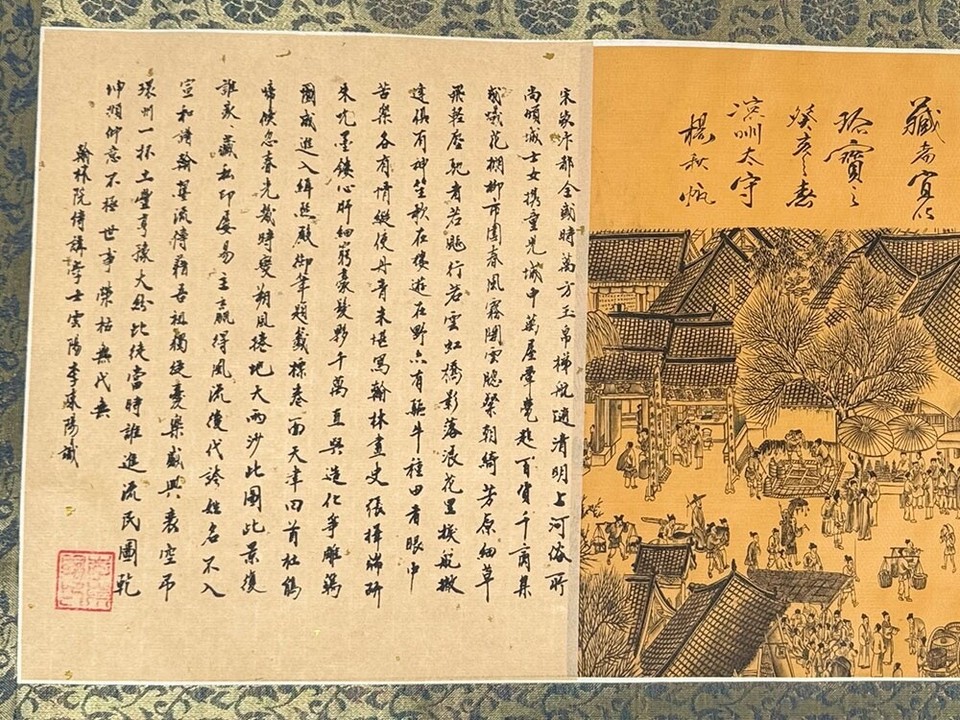 藏者宜什
珎寶之
癸亥之春
滨州太守
楊秋帆
宋家汴都全盛時萬方玉帛梯航通清明上河俗所
尚傾城士女携童兒城中萬屋翬甍起百貨千商集
成蟻花棚柳市圍春風霧閣雲牕粲朝綺芳原細草
飛輕塵馳者若飈行若雲虹橋影落浪花里捩舵撇
蓬俱有神笙歌在樓遊在野亦有驅牛種田者眼中
苦樂各有情縱使丹青未堪寫翰林畫史張擇端研
朱吮墨鏤心肝細窮毫髮夥千萬直與造化爭雕鐫
圖成進入緝熙殿御筆題籤標卷面天津回首杜鵑
啼倏忽春光幾時變朔風捲地天雨沙此圖此景復
誰家家藏私印屢易主贏得風流後代誇姓名不入
宣和譜翰墨流傳藉吾祖獨從憂樂感興衰空吊
環州一抔土豐亨豫大紛此徒當時誰進流民圖乾
坤頫仰意不極世事榮枯無代無
翰林院侍講學士雲陽李東陽識